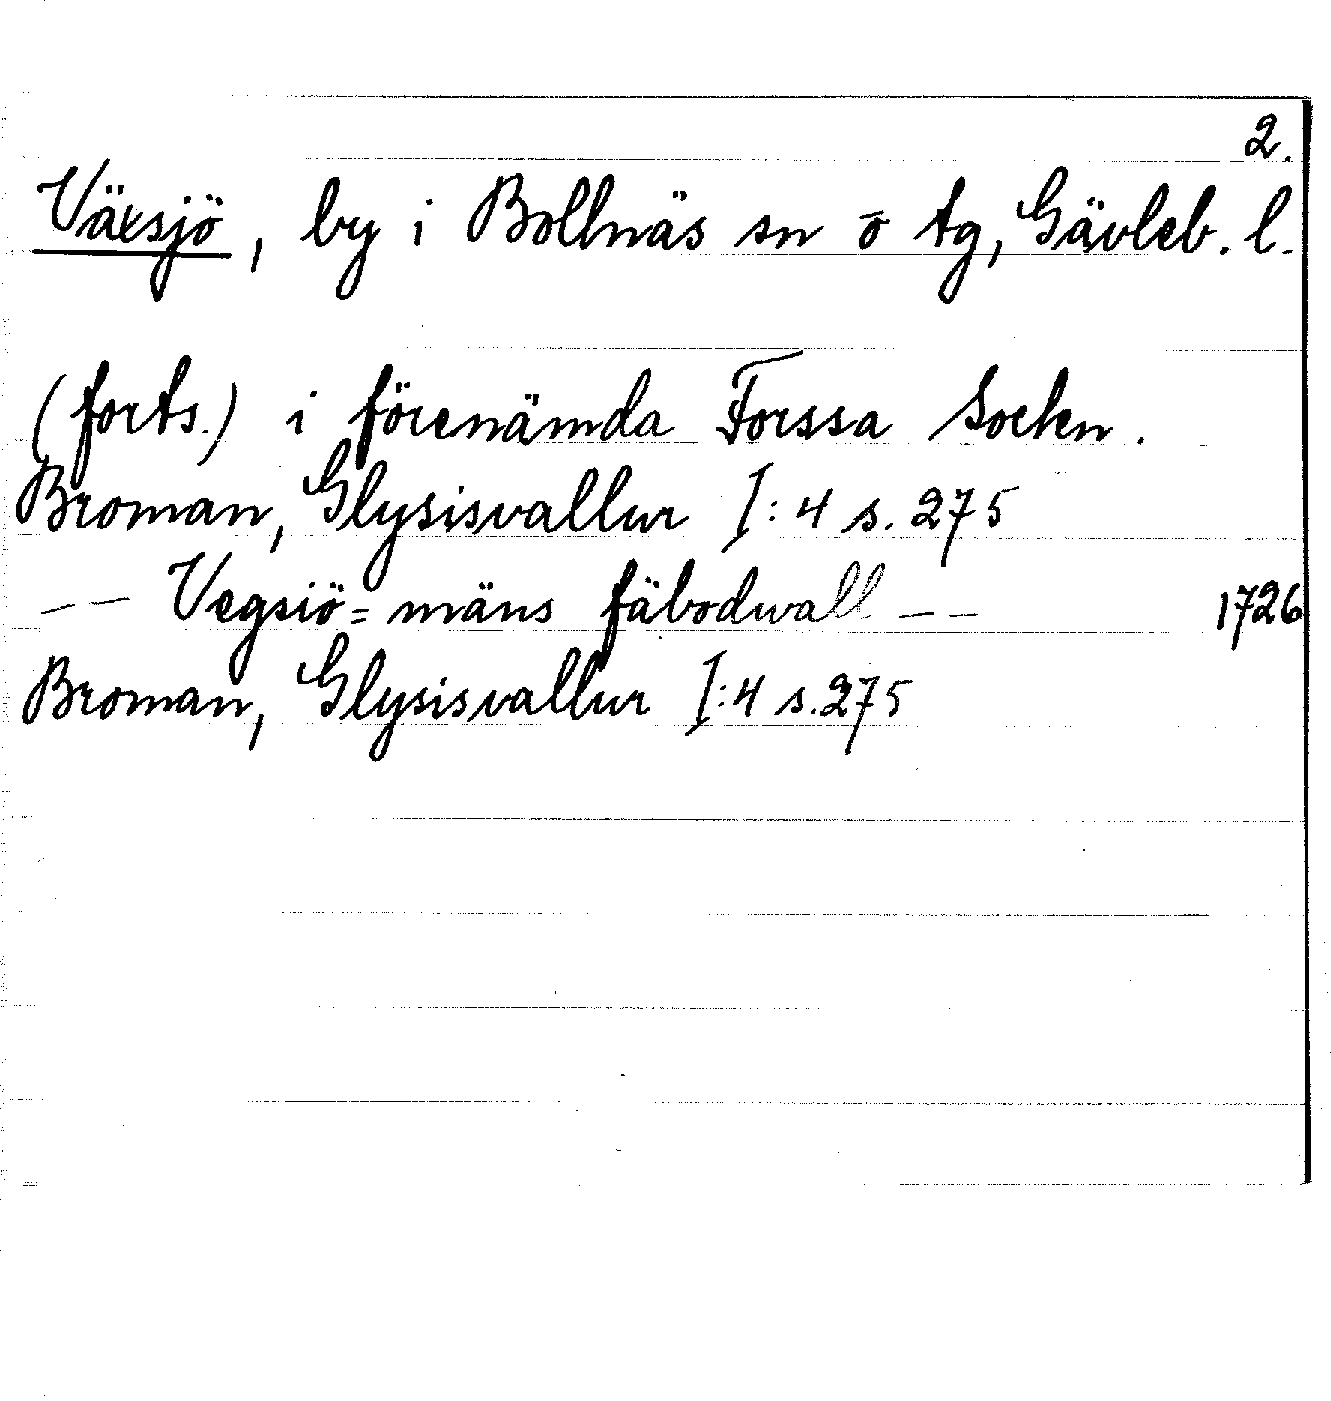 2.
Växsjö, by i Bollnäs sn o tg, Gävleb. l.
(forts.) i förenämda Forssa Socken.
Broman, Glysisvallur I:4 s. 275
— — Vegsiö= mäns fäbodwall — — 1726
Broman, Glysisvallur I:4 s. 275